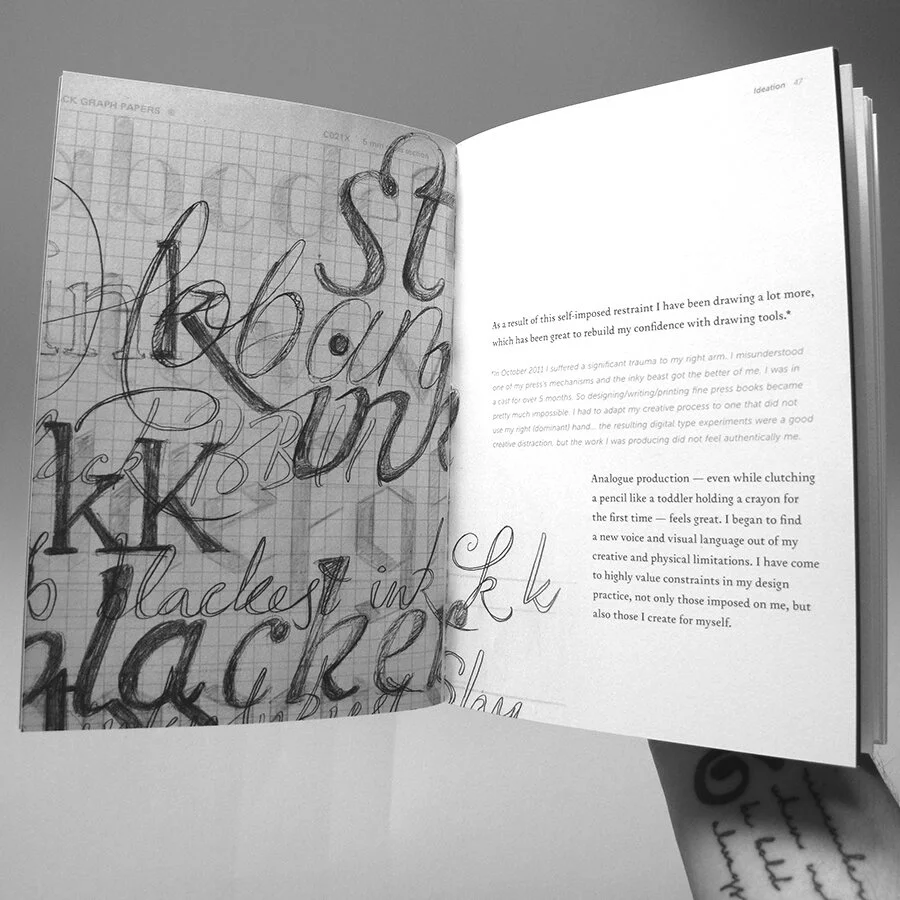 CK GRAPH PAPERS ®
C021X 5 mm
abcde
st
k
b
an
ink
ack
kK
blackest ink
blacke
k k
Ideation 47
As a result of this self-imposed restraint I have been drawing a lot more,
which has been great to rebuild my confidence with drawing tools.*
*in October 2011 I suffered a significant trauma to my right arm. I misunderstood
one of my press's mechanisms and the inky beast got the better of me. I was in
a cast for over 5 months. So designing/writing/printing fine press books became
pretty much impossible. I had to adapt my creative process to one that did not
use my right (dominant) hand... the resulting digital type experiments were a good
creative distraction, but the work I was producing did not feel authentically me.
Analogue production — even while clutching
a pencil like a toddler holding a crayon for
the first time — feels great. I began to find
a new voice and visual language out of my
creative and physical limitations. I have come
to highly value constraints in my design
practice, not only those imposed on me, but
also those I create for myself.
remember
be bold
always